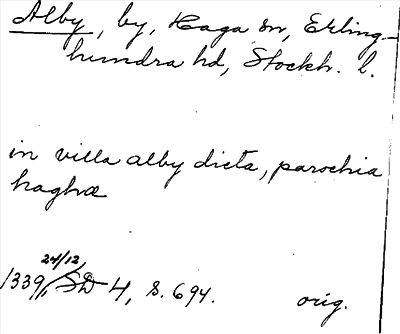 Alby, by, Haga sn, Erling-
hundra hd, Stockh. l.
in villa alby dicta, parochia
haghæ
24/12
1339, SD 4, s. 694. orig.